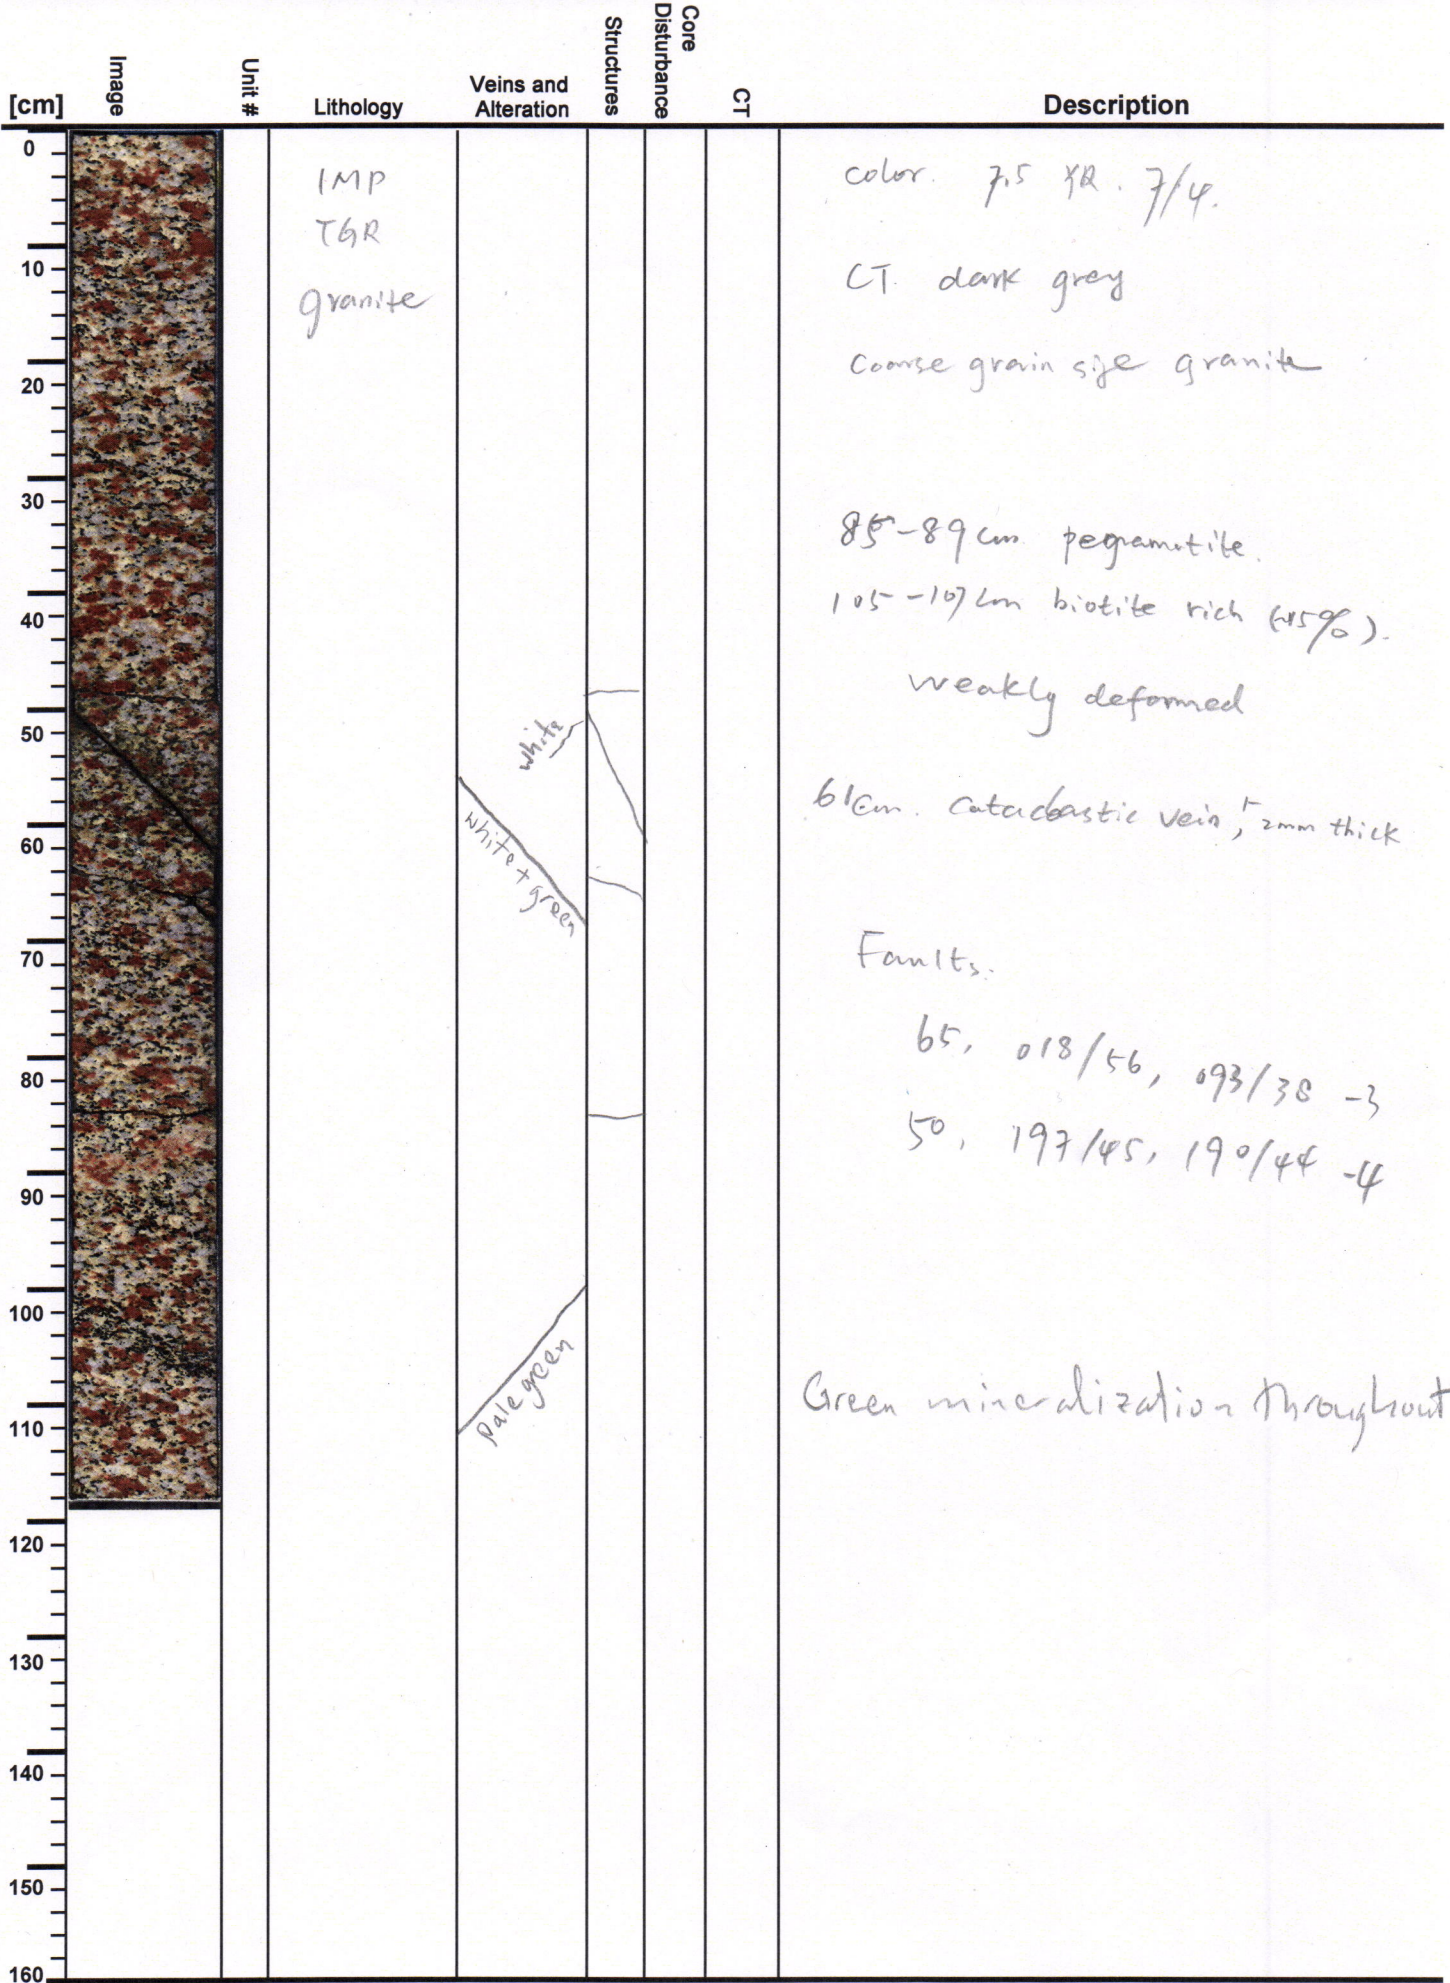 [cm]
Image
Unit #
Lithology
Veins and
Alteration
Structures
Core
Disturbance
CT
Description
0
10
20
30
40
50
60
70
80
90
100
110
120
130
140
150
160
IMP
TGR
granite
white
white + green
pale green
color. 7.5 YR. 7/4.
CT. dark grey
coarse grain size granite
85-89 cm pegramotite.
105-107 cm biotite rich (~15%).
weakly deformed
61cm. cataclastic vein, 2mm thick
Faults.
65, 018/56, 093/38 -3
50, 197/45, 190/44 -4
Green mineralization throughout